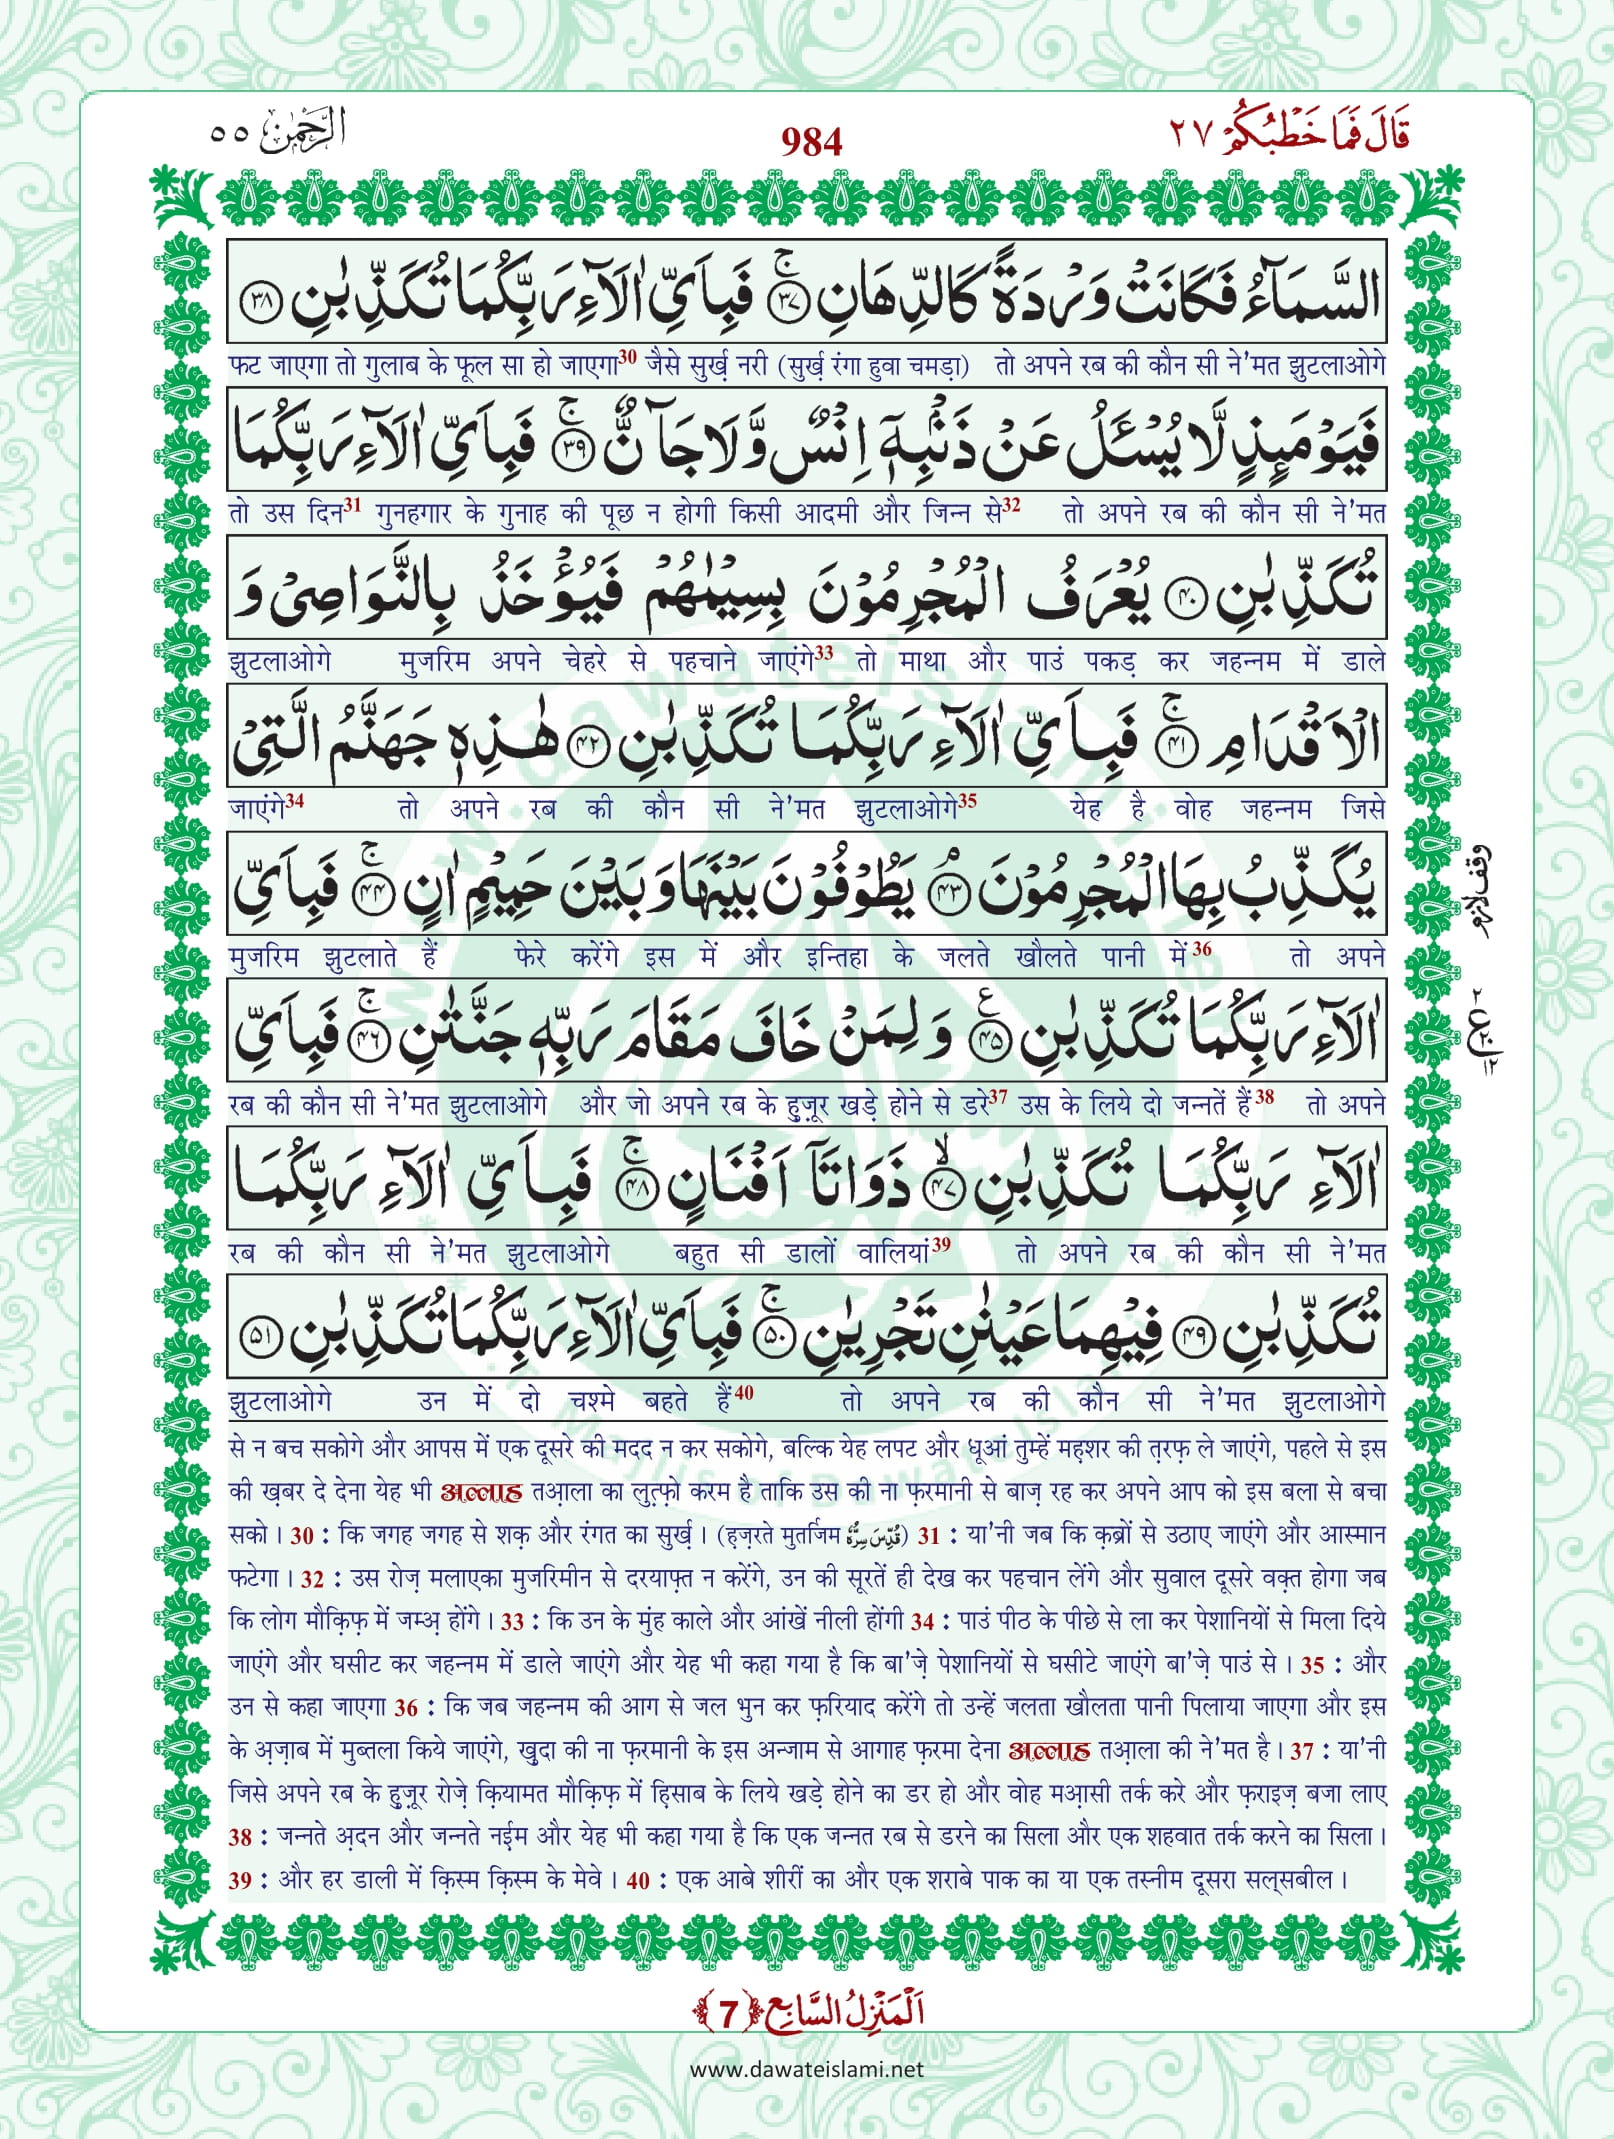 قَالَ فَمَا خَطْبُكُمْ ٢٧
984
الرَّحْمٰن ٥٥
السَّمَآءُ فَكَانَتْ وَرْدَةً كَالدِّهَانِ ۚ﴿٣٧﴾ فَبِاَيِّ اٰلَآءِ رَبِّكُمَا تُكَذِّبٰنِ ﴿٣٨﴾
फट जाएगा तो गुलाब के फूल सा हो जाएगा30 जैसे सुर्ख़ नरी (सुर्ख़ रंगा हुवा चमड़ा) तो अपने रब की कौन सी ने'मत झुटलाओगे
فَيَوْمَئِذٍ لَّا يُسْـَٔلُ عَنْ ذَنْۢبِهٖٓ اِنْسٌ وَّلَا جَآنٌّ ۚ﴿٣٩﴾ فَبِاَيِّ اٰلَآءِ رَبِّكُمَا
तो उस दिन31 गुनहगार के गुनाह की पूछ न होगी किसी आदमी और जिन्न से32 तो अपने रब की कौन सी ने'मत
تُكَذِّبٰنِ ﴿٤٠﴾ يُعْرَفُ الْمُجْرِمُوْنَ بِسِيْمٰهُمْ فَيُؤْخَذُ بِالنَّوَاصِيْ وَ
झुटलाओगे मुजरिम अपने चेहरे से पहचाने जाएंगे33 तो माथा और पाउं पकड़ कर जहन्नम में डाले
الْاَقْدَامِ ۚ﴿٤١﴾ فَبِاَيِّ اٰلَآءِ رَبِّكُمَا تُكَذِّبٰنِ ﴿٤٢﴾ هٰذِهٖ جَهَنَّمُ الَّتِيْ
जाएंगे34 तो अपने रब की कौन सी ने'मत झुटलाओगे35 येह है वोह जहन्नम जिसे
يُكَذِّبُ بِهَا الْمُجْرِمُوْنَ ۘ﴿٤٣﴾ يَطُوْفُوْنَ بَيْنَهَا وَبَيْنَ حَمِيْمٍ اٰنٍ ۚ﴿٤٤﴾ فَبِاَيِّ
وقف لازم
मुजरिम झुटलाते हैं फेरे करेंगे इस में और इन्तिहा के जलते खौलते पानी में36 तो अपने
اٰلَآءِ رَبِّكُمَا تُكَذِّبٰنِ ﴿٤٥﴾ع وَلِمَنْ خَافَ مَقَامَ رَبِّهٖ جَنَّتٰنِ ۚ﴿٤٦﴾ فَبِاَيِّ
रब की कौन सी ने'मत झुटलाओगे और जो अपने रब के हुज़ूर खड़े होने से डरे37 उस के लिये दो जन्नतें हैं38 तो अपने
اٰلَآءِ رَبِّكُمَا تُكَذِّبٰنِ ۙ﴿٤٧﴾ ذَوَاتَآ اَفْنَانٍ ۚ﴿٤٨﴾ فَبِاَيِّ اٰلَآءِ رَبِّكُمَا
रब की कौन सी ने'मत झुटलाओगे बहुत सी डालों वालियां39 तो अपने रब की कौन सी ने'मत
تُكَذِّبٰنِ ﴿٤٩﴾ فِيْهِمَا عَيْنٰنِ تَجْرِيٰنِ ۚ﴿٥٠﴾ فَبِاَيِّ اٰلَآءِ رَبِّكُمَا تُكَذِّبٰنِ ﴿٥١﴾
झुटलाओगे उन में दो चश्मे बहते हैं40 तो अपने रब की कौन सी ने'मत झुटलाओगे
से न बच सकोगे और आपस में एक दूसरे की मदद न कर सकोगे, बल्कि येह लपट और धूआं तुम्हें मह़शर की त़रफ़ ले जाएंगे, पहले से इस
की ख़बर दे देना येह भी अल्लाह तआ़ला का लुत्फ़ो करम है ताकि उस की ना फ़रमानी से बाज़ रह कर अपने आप को इस बला से बचा
सको । 30 : कि जगह जगह से शक़ और रंगत का सुर्ख़ । (ह़ज़रते मुतर्जिम قُدِّسَ سِرُّہٗ) 31 : या'नी जब कि क़ब्रों से उठाए जाएंगे और आस्मान
फटेगा । 32 : उस रोज़ मलाएका मुजरिमीन से दरयाफ़्त न करेंगे, उन की सूरतें ही देख कर पहचान लेंगे और सुवाल दूसरे वक़्त होगा जब
कि लोग मौक़िफ़ में जम्अ़ होंगे । 33 : कि उन के मुंह काले और आंखें नीली होंगी 34 : पाउं पीठ के पीछे से ला कर पेशानियों से मिला दिये
जाएंगे और घसीट कर जहन्नम में डाले जाएंगे और येह भी कहा गया है कि बा'ज़े पेशानियों से घसीटे जाएंगे बा'ज़े पाउं से । 35 : और
उन से कहा जाएगा 36 : कि जब जहन्नम की आग से जल भुन कर फ़रियाद करेंगे तो उन्हें जलता खौलता पानी पिलाया जाएगा और इस
के अ़ज़ाब में मुब्तला किये जाएंगे, ख़ुदा की ना फ़रमानी के इस अन्जाम से आगाह फ़रमा देना अल्लाह तआ़ला की ने'मत है । 37 : या'नी
जिसे अपने रब के हुज़ूर रोज़े क़ियामत मौक़िफ़ में हि़साब के लिये खड़े होने का डर हो और वोह मआ़सी तर्क करे और फ़राइज़ बजा लाए
38 : जन्नते अ़दन और जन्नते नई़म और येह भी कहा गया है कि एक जन्नत रब से डरने का सिला और एक शहवात तर्क करने का सिला ।
39 : और हर डाली में क़िस्म क़िस्म के मेवे । 40 : एक आबे शीरीं का और एक शराबे पाक का या एक तस्नीम दूसरा सल्सबील ।
اَلْمَنْزِلُ السَّابِع ﴿7﴾
www.dawateislami.net